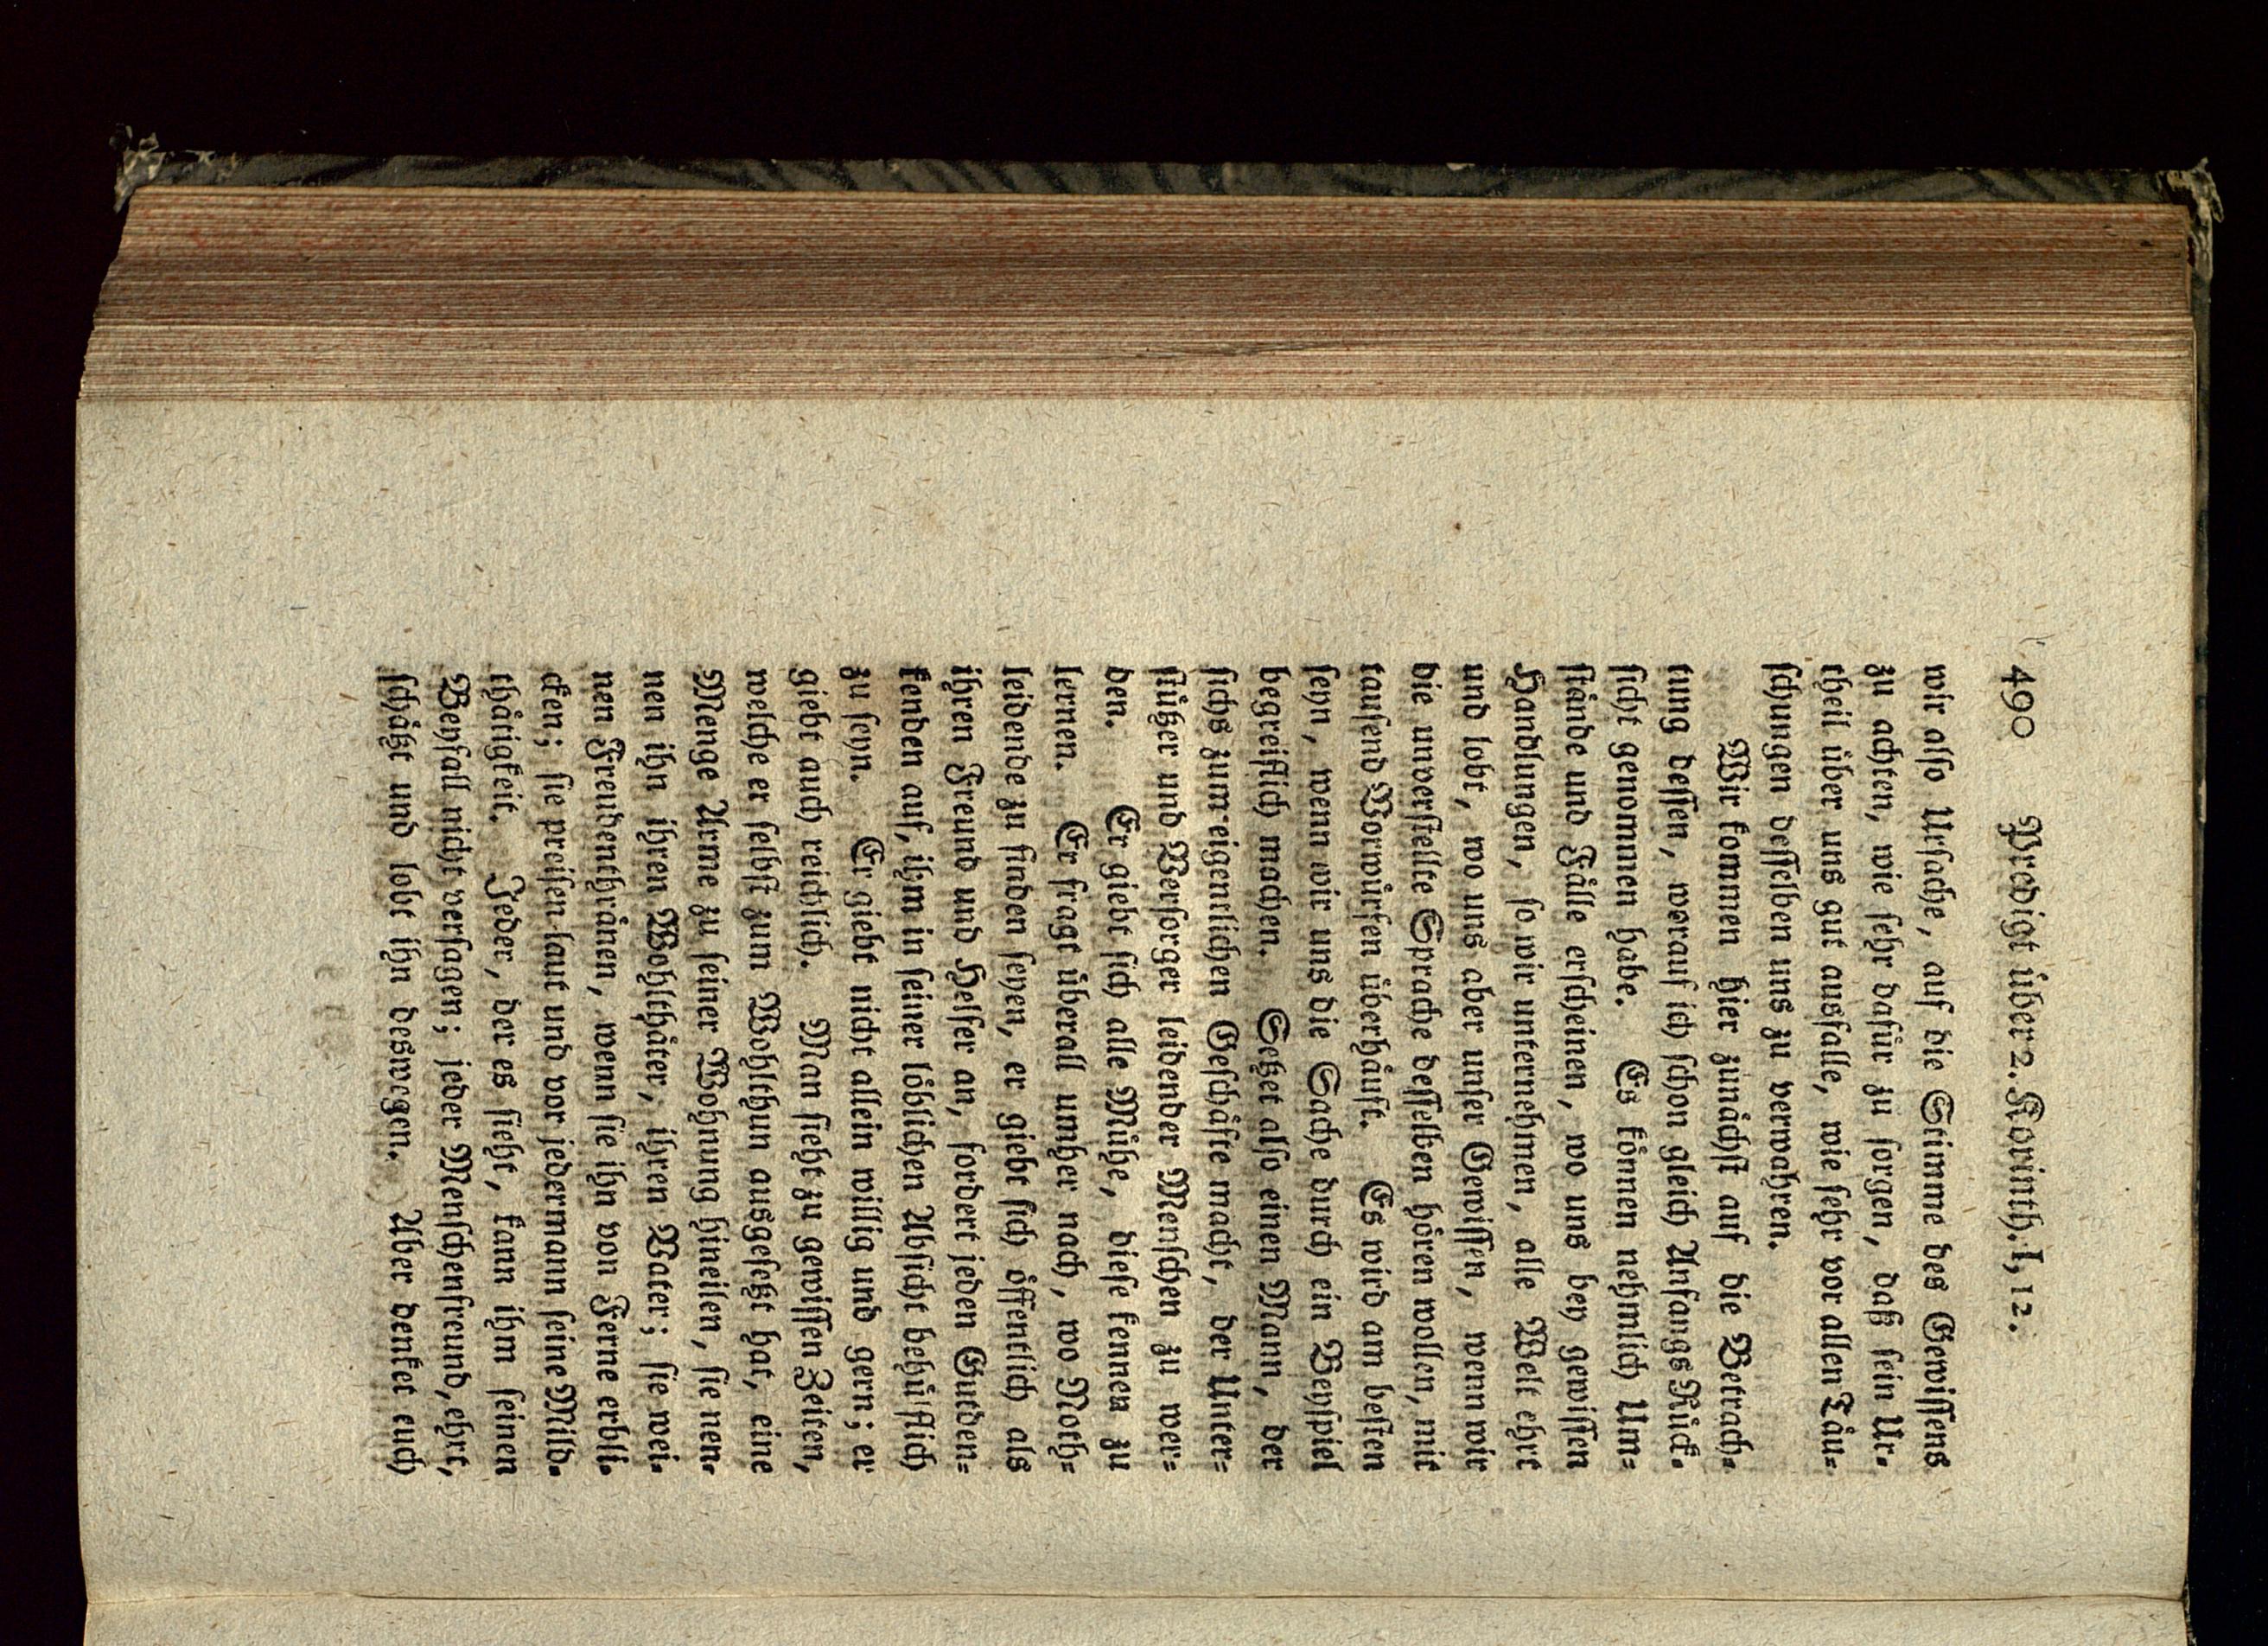 490 Predigt über 2. Korinth. I, 12.
wir also Ursache, auf die Stimme des Gewissens
zu achten, wie sehr dafür zu sorgen, daß sein Ur-
theil über uns gut ausfalle, wie sehr vor allen Täu-
schungen desselben uns zu verwahren.
Wir kommen hier zunächst auf die Betrach-
tung dessen, worauf ich schon gleich Anfangs Rück-
sicht genommen habe. Es können nehmlich Um-
stände und Fälle erscheinen, wo uns bey gewissen
Handlungen, so wir unternehmen, alle Welt ehrt
und lobt, wo uns aber unser Gewissen, wenn wir
die unverstellte Sprache desselben hören wollen, mit
tausend Vorwürfen überhäuft. Es wird am besten
seyn, wenn wir uns die Sache durch ein Beyspiel
begreiflich machen. Setzet also einen Mann, der
sichs zum eigentlichen Geschäfte macht, der Unter-
stützer und Versorger leidender Menschen zu wer-
den. Er giebt sich alle Mühe, diese kennen zu
lernen. Er fragt überall umher nach, wo Noth-
leidende zu finden seyen, er giebt sich öffentlich als
ihren Freund und Helfer an, fordert jeden Gutden-
kenden auf, ihm in seiner löblichen Absicht behülflich
zu seyn. Er giebt nicht allein willig und gern; er
giebt auch reichlich. Man sieht zu gewissen Zeiten,
welche er selbst zum Wohlthun ausgesetzt hat, eine
Menge Arme zu seiner Wohnung hineilen, sie nen-
nen ihn ihren Wohlthäter, ihren Vater; sie wei-
nen Freudenthränen, wenn sie ihn von Ferne erbli-
cken; sie preisen laut und vor jedermann seine Mild-
thätigkeit. Jeder, der es sieht, kann ihm seinen
Beyfall nicht versagen; jeder Menschenfreund, ehrt,
schätzt und lobt ihn deswegen. Aber denket euch